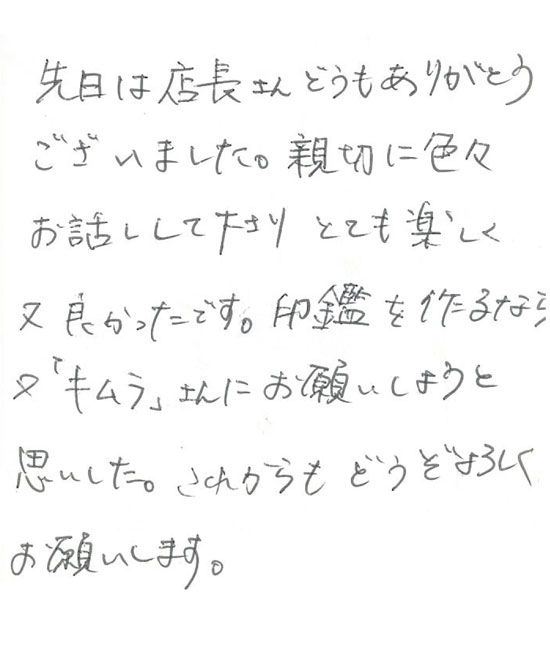 先日は店長さんどうもありがとう
ございました。親切に色々
お話しして下さりとても楽しく
又良かったです。印鑑を作るなら
又「キムラ」さんにお願いしようと
思いした。これからもどうぞよろしく
お願いします。